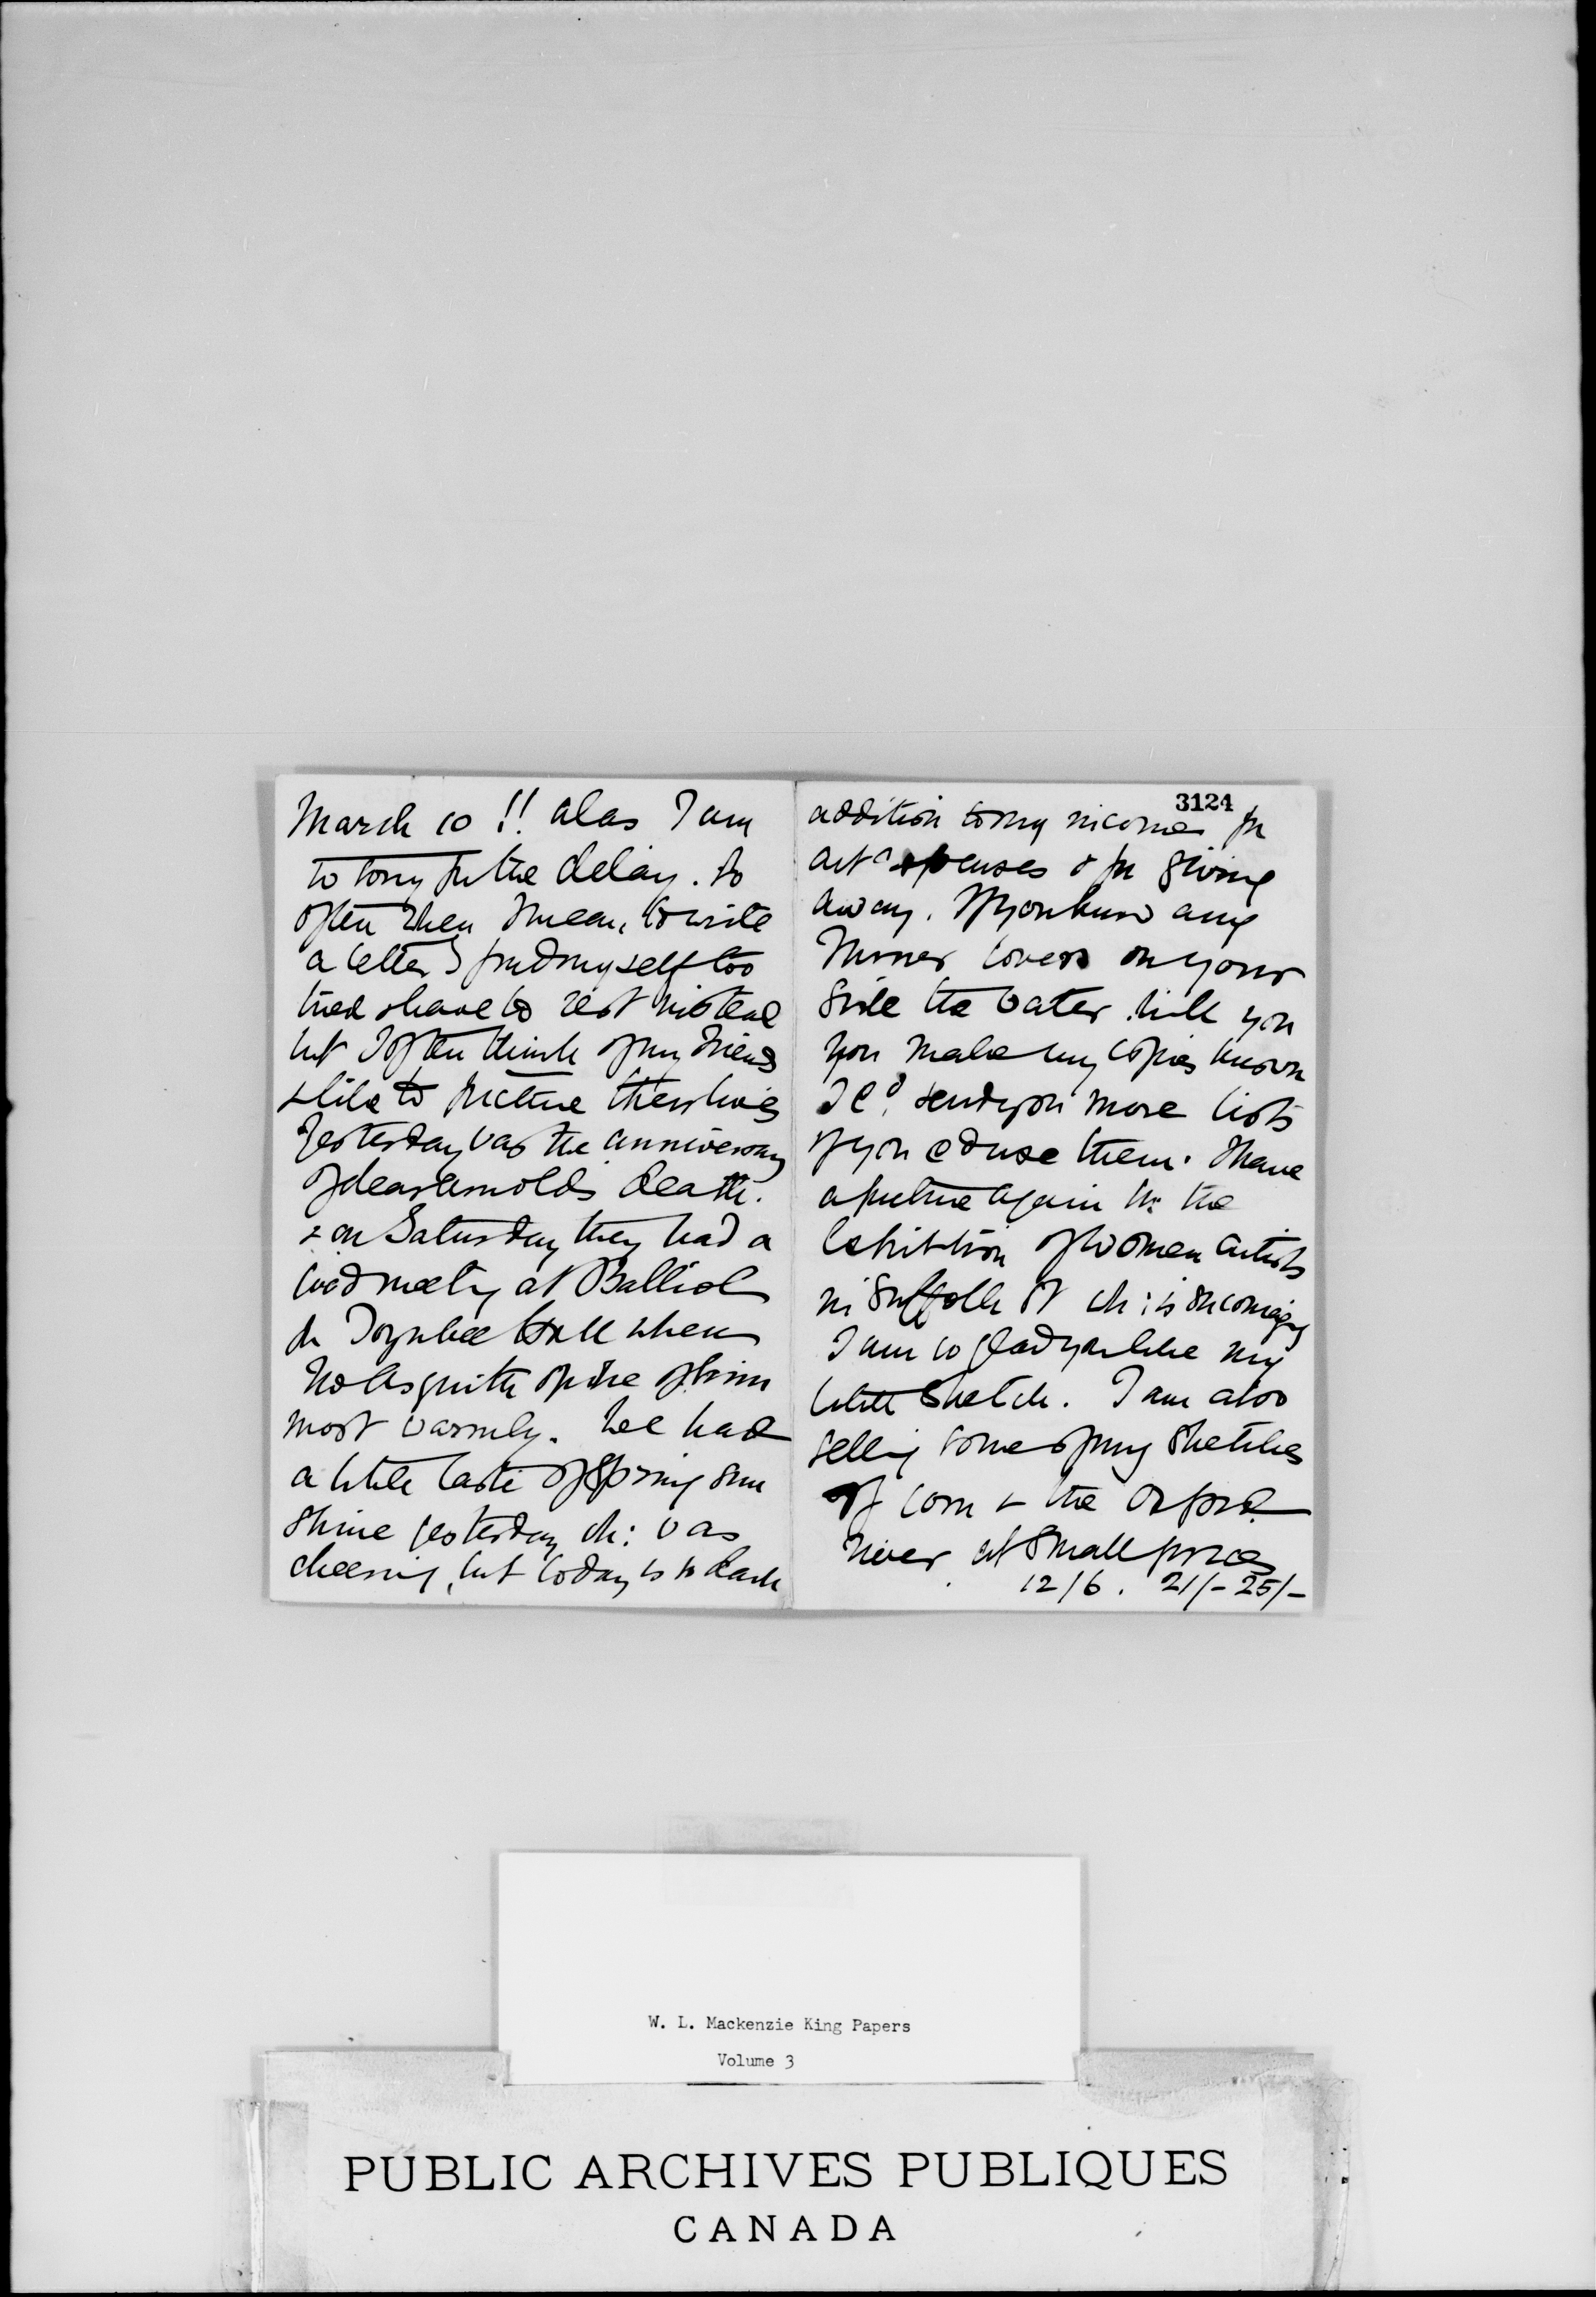 March 10 !! alas I am
so sorry for the delay. So
often when I mean to write
a letter I find myself too
tired & have to rest instead
but I often think of my friends
& like to picture their lives
Yesterday was the anniversary
of dear Arnolds death.
& on Saturday they had a
good meeting at Balliol
for Toynbee Hall when
Mr Asquith spoke of him
most warmly. We had
a little taste of Spring sun
shine yesterday wh: was
cheering, but today is so dark
3124
addition to my income for
art expenses & for giving
away. If you know any
Turner lovers on your
side the water will you
you make my copies known
I cd. send you more lists
if you cd use them. I have
a picture again in the
Exhibition of Women Artists
in Suffolk St wh: is encouraging
I am so glad you like my
little sketch. I am also
selling some of my sketches
of corn & the Oxford
river at small prices
12/6. 21/- 25/-
W. L. Mackenzie King Papers
Volume 3
PUBLIC ARCHIVES PUBLIQUES
CANADA